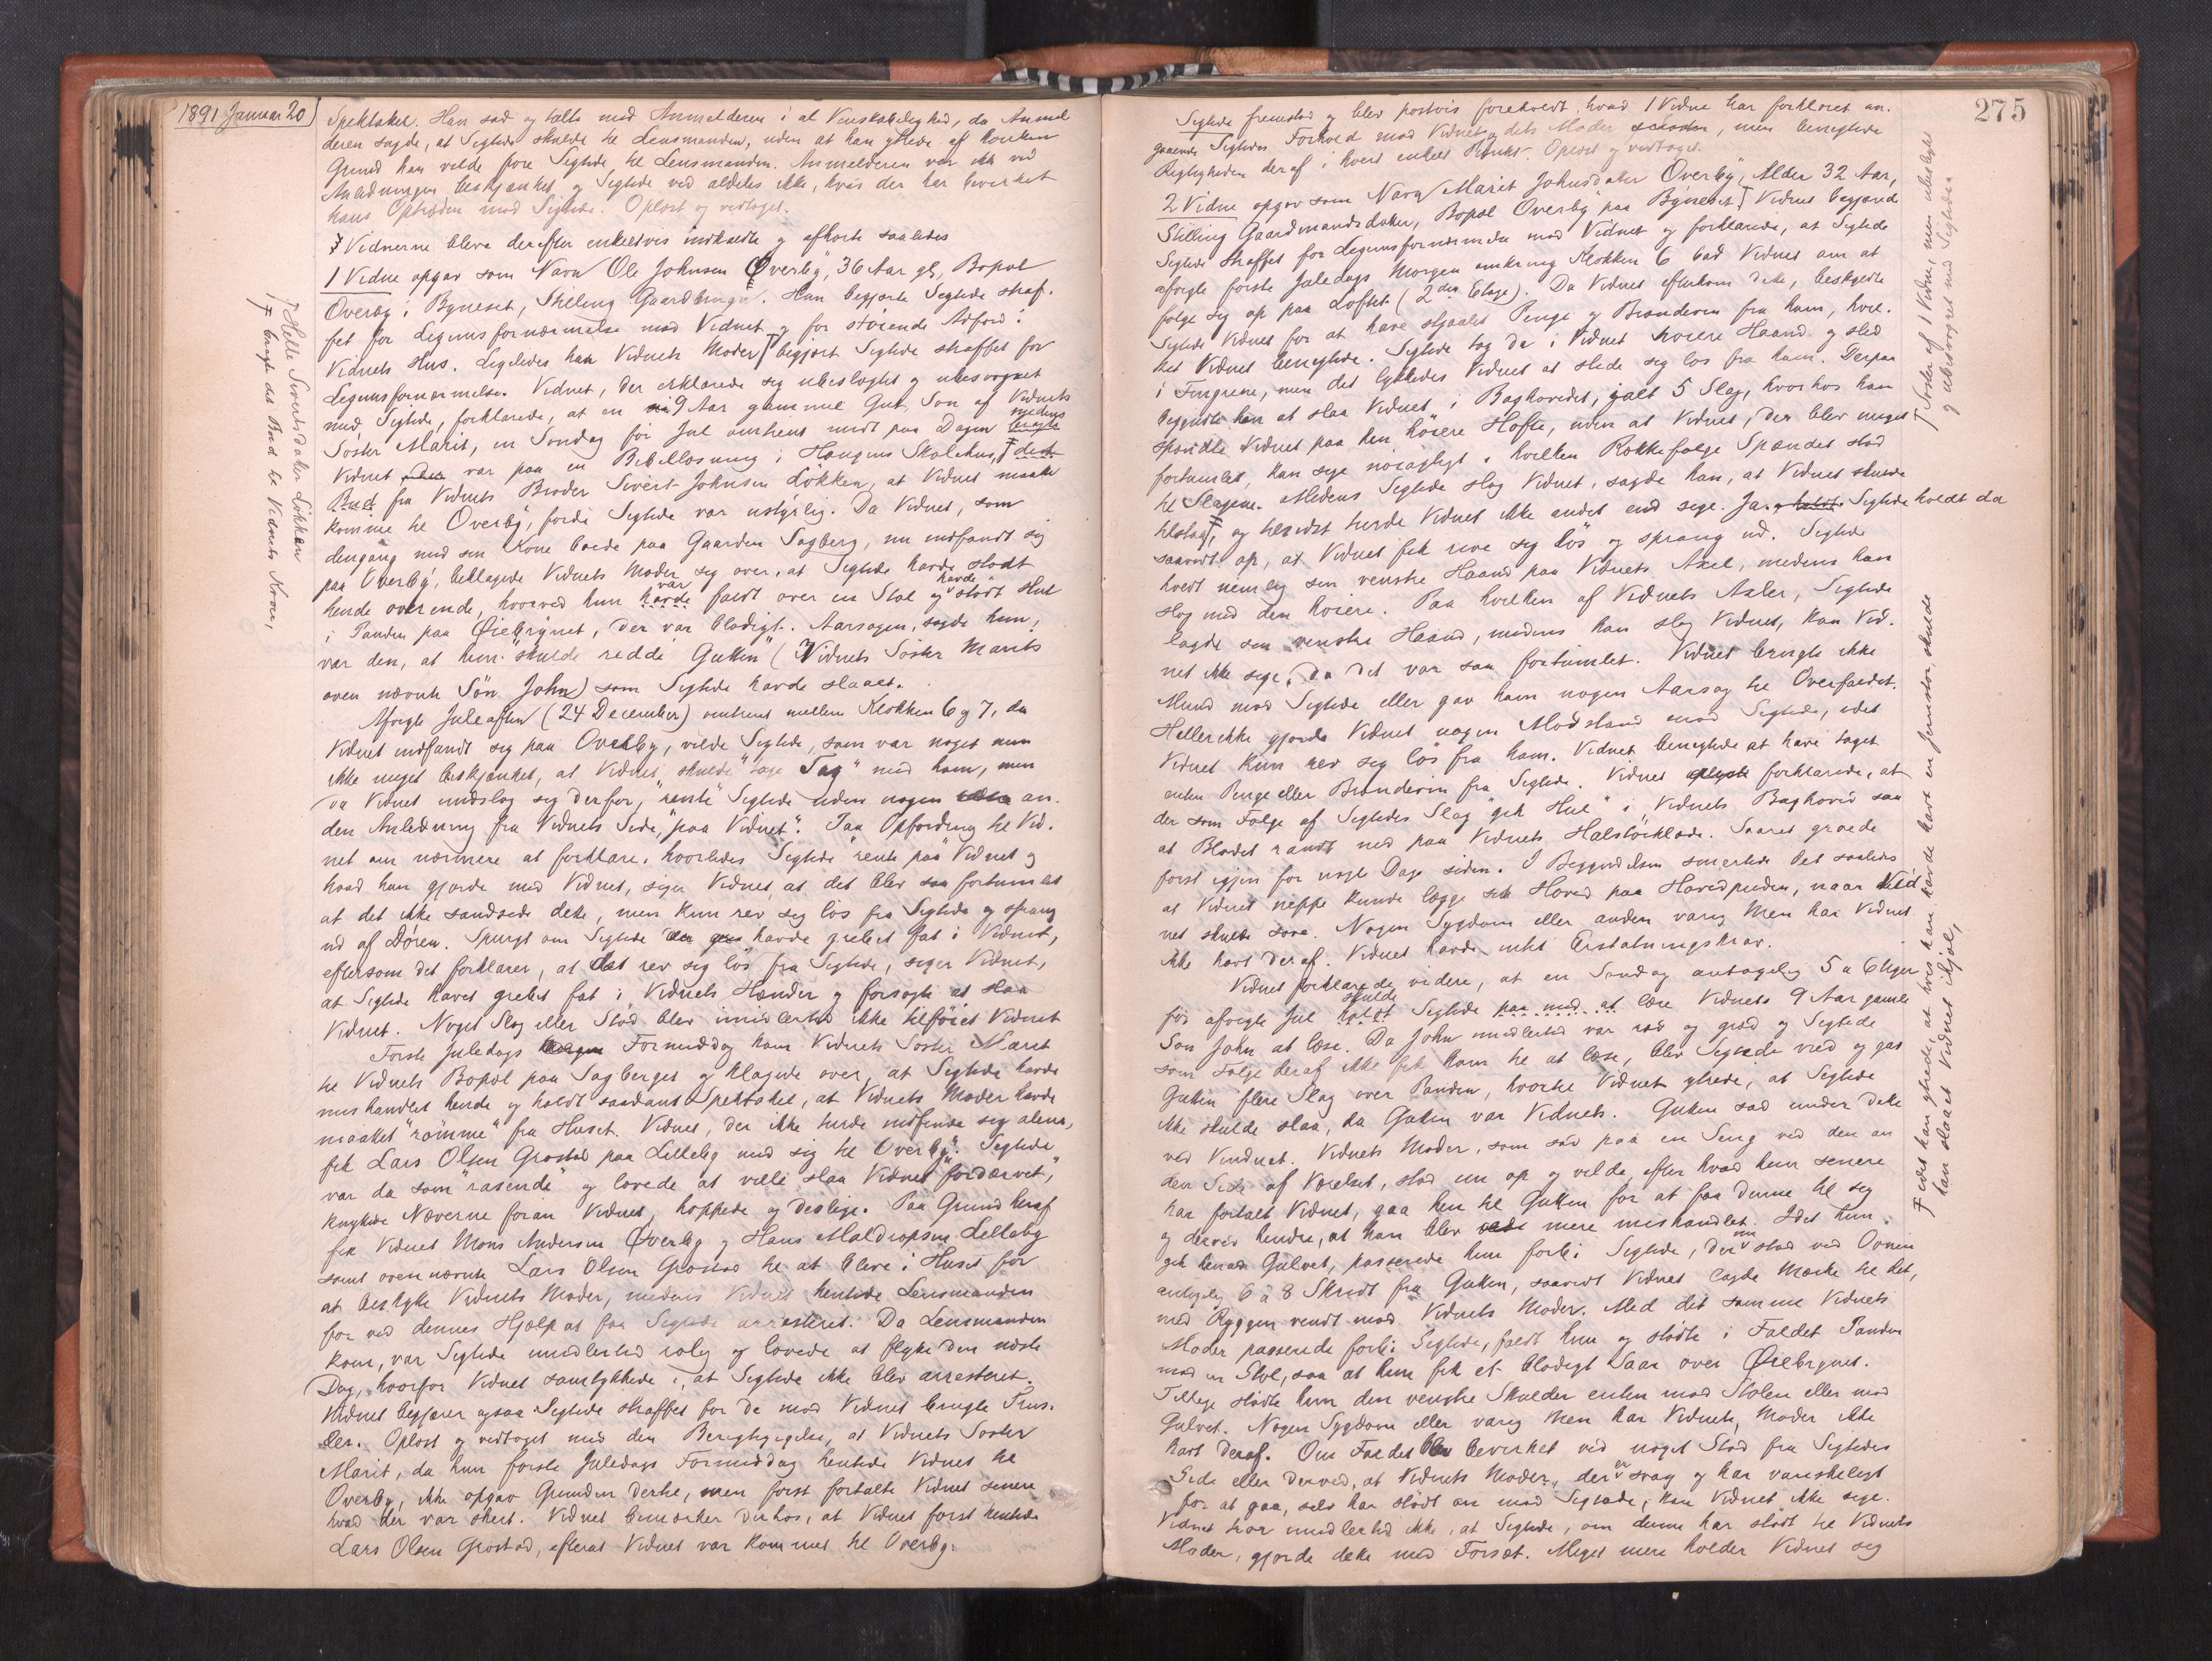 1891 Januar 20
Spektakel. Han sad og talte med Anmelderen i al Venskabelighed, da Anmel
deren sagde, at Sigtede skulde til Lensmanden, uden at han ytrede af hvilken
Grund han vilde føre Sigtede til Lensmanden. Anmelderen var ikke ved
Anledningen beskjænket, og Sigtede ved aldeles ikke, hvis der har bevirket
hans Optræden mod Sigtede. Oplæst og vedtaget.
Vidnerne bleve derefter enkeltvis indkaldte og afhørte saaledes
1 Vidne opgav som Navn Ole Johnsen Øverby, 36 Aar gl, Bopæl
Overby i Bynesset, Stilling Gaardbruger. Han begjærte Sigtede straf.
fet for Legemsfornærmelse mod Vidnet og for störende Adfærd i
Vidnets Hus. Ligeledes har Vidnets Moder ꟻ begjært Sigtede straffet for
Legemsfornærmelse. Vidnet, der erklærede sig ubeslægtet og ubesvogret
med Sigtede, forklarede, at en 9 Aar gammel Gut, Søn af Vidnets
Söster Marit, en Søndag før Jul omtrent midt paa Dagen medens
Vidnet var paa en Bibellæsning i Haugens Skolehus, ꟻ
Bud fra Vidnets Broder Sivert Johnsen Løkken, at Vidnet maatte
komme til Överby, fordi Sigtede var ustyrlig. Da Vidnet, som
dengang med sin Kone boede paa Gaarden Sagberg, nu indfandt sig
paa Överby, beklagede Vidnets Moder sig over, at Sigtede havde stødt
hende overende, hvorved hun var faldt over en Stol og havde stödt Hul
i Panden paa Øiebrynet, der var blodigt. Aarsagen, sagde hun,
var den, at hun "skulde redde Gutten" (Vidnets Söster Marits
oven nævnte Sön John) som Sigtede havde slaaet.
Afvigte Juleaften (24 December) omtrent mellem Klokken 6 og 7, da
Vidnet indfandt sig paa Överby, vilde Sigtede, som var noget men
ikke meget beskjænket, at Vidnet skulde "tage Tag" med ham, men
da Vidnet undslog sig derfor, "rente" Sigtede uden nogen an.
den Anledning fra Vidnets Side, "paa Vidnet". Paa Opfordring til Vid.
net om nærmere at forklare, hvorledes Sigtede "rente paa" Vidnet og
hvad han gjorde med Vidnet, siger Vidnet, at det blev saa fortumlet
at det ikke sandsede dette, men kun rev sig lös fra Sigtede og sprang
ud af Dören. Spurgt om Sigtede havde grebet fat i Vidnet,
eftersom det forklarer, at det rev sig lös fra Sigtede, siger Vidnet,
at Sigtede havde grebet fat i Vidnets Hænder og forsøgte at slaa
Vidnet. Noget Slag eller Stød blev imidlertid ikke tilføiet Vidnet
Første Juledags Formiddag kom Vidnets Søster Marit
til Vidnets Bopæl paa Sagberget og klagede over, at Sigtede havde
mishandlet hende og holdt saadant Spektakel, at Vidnets Moder havde
maattet "römme" fra Huset. Vidnet, der ikke turde indfinde sig alene,
fik Lars Olsen Grostad paa Lilleby med sig til Överby. Sigtede
var da som "rasende" og lovede at ville slaa Vidnet "fordærvet",
knyttede Næverne foran Vidnet, hoppede og deslige. Paa Grund heraf
fik Vidnet Mons Andersen Øverby og Hans Lilleby
samt ovennævnte Lars Olsen Grostad til at blive i Huset for
at beskytte Vidnets Moder, medens Vidnet hentede Lensmanden
for ved dennes Hjælp at faa Sigtede arresteret. Da Lensmanden
kom, var Sigtede imidlertid rolig og lovede at flytte den næste
Dag, hvorfor Vidnet samtykkede i, at Sigtede ikke blev arresteret.
Vidnet begjærer ogsaa Sigtede straffet for de mod Vidnet brugte Trus.
ler. Oplæst og vedtaget med den Berigtigelse, at Vidnets Søster
Marit, da hun første Juledags Formiddag hentede Vidnet til
Överby, ikke opgav Grunden dertil, men først fortalte Vidnet senere
hvad der var skeet. Vidnet bemærker derhos, at Vidnet først hentede
Lars Olsen Grostad, efterat Vidnet var kommet til Överby.
ꟻ Helle Sivertsdatter Lökken
ꟻ bragte det Bud til Vidnets Kone,
275
Sigtede fremstod og blev postvis foreholdt, hvad 1 Vidne har forklaret an.
gaaende Sigtedes Forhold mod Vidnet og dets Moder, men benegtede
Rigtigheden deraf i hvert enkelt Punkt. Oplæst og vedtaget.
2 Vidne opgav som Navn Marit Johnsdatter Överby, Alder 32 Aar,
Stilling Gaardmandsdatter, Bopæl Överby paa Bynesset. ꟻ Vidnet begjærede
Sigtede straffet for Legemsfornærmelse mod Vidnet og forklarede, at Sigtede
afvigte første Juledags Morgen omkring Klokken 6 bad Vidnet om at
følge sig op paa Loftet (2den Etage). Da Vidnet efterkom dette, beskyldte
Sigtede Vidnet for at have stjaalet Penge og Brændevin fra ham, hvil.
ket Vidnet benegtede. Sigtede tog da i Vidnet höiere Haand og sled
i Fingrene, men det lykkedes Vidnet at slide sig løs fra ham. Derpaa
begyndte han at slaa Vidnet i Baghovedet, ialt 5 Slag, hvorhos han
spændte Vidnet paa den höiere Höfte, uden at Vidnet, der blev meget
fortumlet, kan sige nöiagtigt i hvilken Rækkefølge Spændet stod
til Slagene. Medens Sigtede slog Vidnet, sagde han, at Vidnet skulde
tilstaa, og tilsidst turde Vidnet ikke andet end sige Ja. Sigtede holdt da
saavidt op, at Vidnet fik rive sig lös og sprang ud. Sigtede
holdt nemlig sin venstre Haand paa Vidnets Axel, medens han
slog med den höiere. Paa hvilken af Vidnets Axler, Sigtede
lagde sin venstre Haand, medens han slog Vidnet, kan Vid.
net ikke sige, da det var saa fortumlet. Vidnet brugte ikke
Mund mod Sigtede eller gav ham nogen Aarsag til Overfaldet.
Heller ikke gjorde Vidnet nogen Modstand mod Sigtede, idet
Vidnet kun rev sig lös fra ham. Vidnet benegtede at have taget
enten Penge eller Brændevin fra Sigtede. Vidnet forklarede, at
der som Følge af Sigtedes Slag "gik Hul" i Vidnets Baghoved saa
at Blodet randt ned paa Vidnets Halstörklæde. Saaret groede
først igjen for nogle Dage siden. I Begyndelsen smertede det saaledes
at Vidnet neppe kunde lægge sit Hoved paa Hovedpuden, naar Vid
net skulde sove. Nogen Sygdom eller anden varig Men har Vidnet
ikke havt deraf. Vidnet havde intet Erstatningskrav.
Vidnet forklarede videre, at en Søndag antagelig 5 a 6 Uger
før afvigte Jul skulde Sigtede lære Vidnets 9 Aar gamle
Søn John at læse. Da John imidlertid var ræd og græd og Sigtede
som Følge deraf ikke fik ham til at læse, blev Sigtede vred og gav
Gutten flere Slag over Panden, hvortil Vidnet ytrede, at Sigtede
ikke skulde slaa, da Gutten var Vidnets. Gutten sad under dette
ved Vinduet. Vidnets Moder, som sad paa en Seng ved den an
den Side af Værelset, stod nu op og vilde, efter hvad hun senere
har fortalt Vidnet, gaa hen til Gutten for at faa denne til sig
og derved hindre, at han blev mere mishandlet. Idet hun
gik henad Gulvet, passerede hun forbi Sigtede, der nu stod ved Ovnen
antagelig 6 a 8 Skridt fra Gutten, saavidt Vidnet lagde Mærke til det,
med Ryggen vendt mod Vidnets Moder. Med det samme Vidnets
Moder passerede forbi Sigtede, faldt hun og stødte i Faldet Panden
mod en Stol, saa at hun fik et blodigt Saar over Øiebrynet.
Tillige stødte hun den venstre Skulder enten mod Stolen eller mod
Gulvet. Nogen Sygdom eller varig Men har Vidnets Moder ikke
havt deraf. Om Faldet blev bevirket ved noget Stød fra Sigtedes
Side eller derved, at Vidnets Moder, der er svag og har vanskeligt
for at gaa, selv har stödt an mod Sigtede, kan Vidnet ikke sige.
Vidnet tror imidlertid ikke, at Sigtede, om denne har stødt til Vidnets
Moder, gjorde dette med Forsæt. Meget mere holder Vidnet sig
ꟻ Søster af 1 Vidne, men ubeslægtet
og ubesvogret med Sigtede
ꟻ idet han ytrede, at hvis han havde havt en Jernstör, skulde
han slaaet Vidnet ihjel,